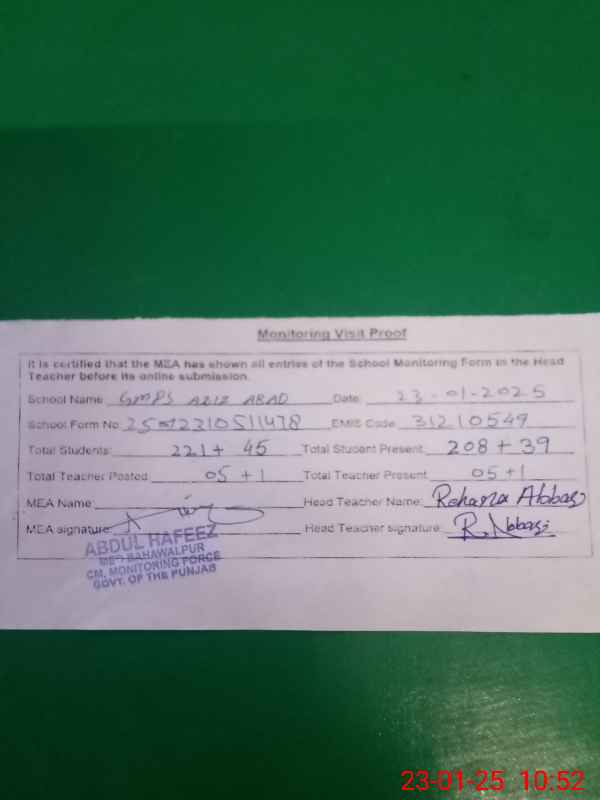 Monitoring Visit Proof
It is certified that the MEA has shown all entries of the School Monitoring Form in the Head
Teacher before its online submission.
School Name GMPS AZIZ ABAD Date: 23-01-2025
School Form No: EMIS Code 31210549
Total Students: 221+ 45 Total Student Present 208 + 39
Total Teacher Posted: 05 + 1 Total Teacher Present 05 + 1
MEA Name: Head Teacher Name: Rehana Abbas
MEA signature: Head Teacher signature: R. Abbasi
ABDUL HAFEEZ
BAHAWALPUR
CM, MONITORING FORCE
GOVT. OF THE PUNJAB
23-01-25 10:52